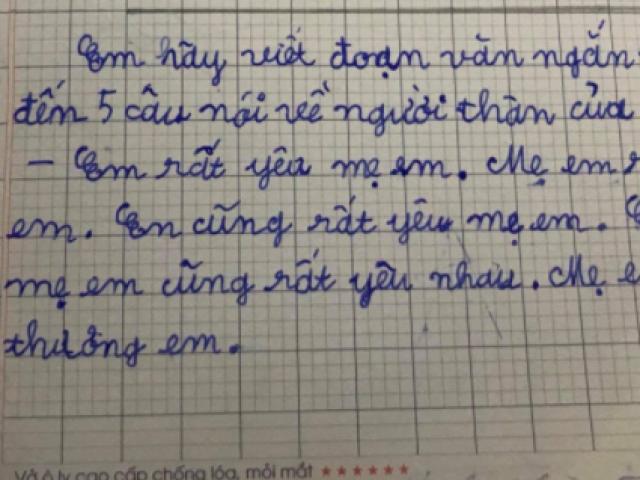 Em hãy viết đoạn văn ngắn
đến 5 câu nói về người thân của
- Em rất yêu mẹ em. Mẹ em
em. Em cũng rất yêu mẹ em.
mẹ em cũng rất yêu nhau. Mẹ e
thương em.
Vở ô ly cao cấp chống lóa, mỏi mắt ★★★★★★